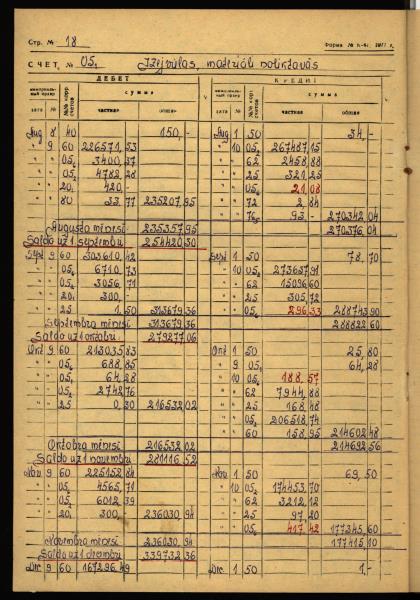 Стр. № 18
Форма № К-4
СЧЕТ, № 05₁ Izejvielas, materiāli noliktavās
ДЕБЕТ КРЕДИТ
мемориальный ордер №№ корр. счетов сумма мемориальный ордер №№ корр. счетов сумма
дата № частная общая дата № частная общая
Aug 8 40 150,— Aug 1 50 34,—
" 9 60 226571,53 " 10 05₂ 267487,15
" " 05₄ 3400,37 " " 62 2458,88
" " 05₆ 4782,28 " " 25 321,25
" " 20₁ 420,— " " 05₆ 21,08
" " 80 33,77 235207,95 " " 72 2,84
" " 76₅ 93,— 270342,04
Augusta mēnesī 235357,95 270376,04
Saldo uz 1 septembri 254420,30
Sept 9 60 303610,42 Sept 1 50 78,70
" " 05₄ 6710,73 " 10 05₂ 273657,91
" " 05₆ 3056,71 " " 62 15096,60
" " 20₁ 300,— " " 25 305,72
" " 25 1,50 313679,36 " " 05₆ 296,33 288743,90
Septembra mēnesī 313679,36 288822,60
Saldo uz 1 oktobri 279277,06
Okt 9 60 213035,83 Okt 1 50 25,80
" " 05₆ 688,85 " 9 05₆ 64,28
" " 05₄ 64,28 " 10 05₆ 188,57
" " 05₂ 2742,76 " " 62 7944,88
" " 25 0,30 216532,02 " " 25 168,48
" " 05₂ 206518,74
" " 60 158,95 214602,48
Oktobra mēnesī 216532,02 214692,56
Saldo uz 1 novembri 281116,52
Nov 9 60 225152,84 Nov 1 50 69,50
" " 05₄ 4565,71 " 10 05₂ 174453,70
" " 05₂ 6012,39 " " 62 3212,12
" " 20₁ 300,— 236030,94 " " 25 97,20
" " 05₆ 417,42 177345,60
Novembra mēnesī 236030,94 177415,10
Saldo uz 1 decembri 339732,36
Dec 9 60 167296,49 Dec 1 50 1,—